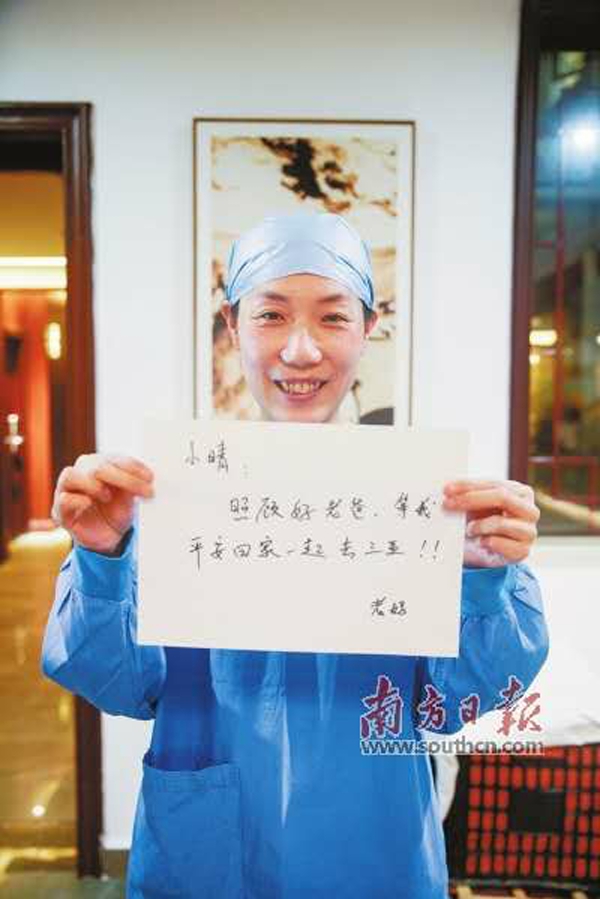 小晴：
照顾好老爸、等我
平安回家一起去三亚!!
老妈
南方日报
www.southcn.com